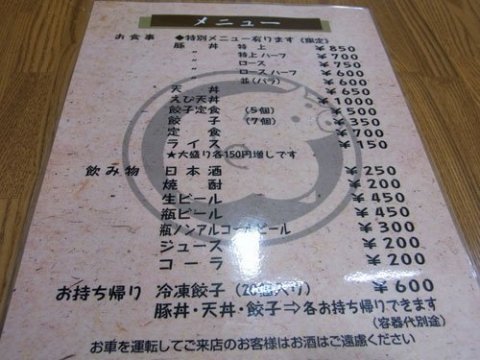 メニュー
お食事 ◆特別メニュー有ります(限定)
豚丼 特上 ¥850
〃 特上ハーフ ¥700
〃 ロース ¥750
〃 ロースハーフ ¥600
〃 並(バラ) ¥600
天丼 ¥650
えび天丼 ¥1000
餃子定食 (5個) ¥500
餃子 (7個) ¥350
定食 ¥700
ライス ¥150
★大盛り各150円増しです
飲み物 日本酒 ¥250
焼酎 ¥200
生ビール ¥450
瓶ビール ¥450
瓶ノンアルコールビール ¥300
ジュース ¥200
コーラ ¥200
お持ち帰り 冷凍餃子 (20個入り) ¥600
豚丼・天丼・餃子⇒各お持ち帰りできます
(容器代別途)
お車を運転してご来店のお客様はお酒はご遠慮ください